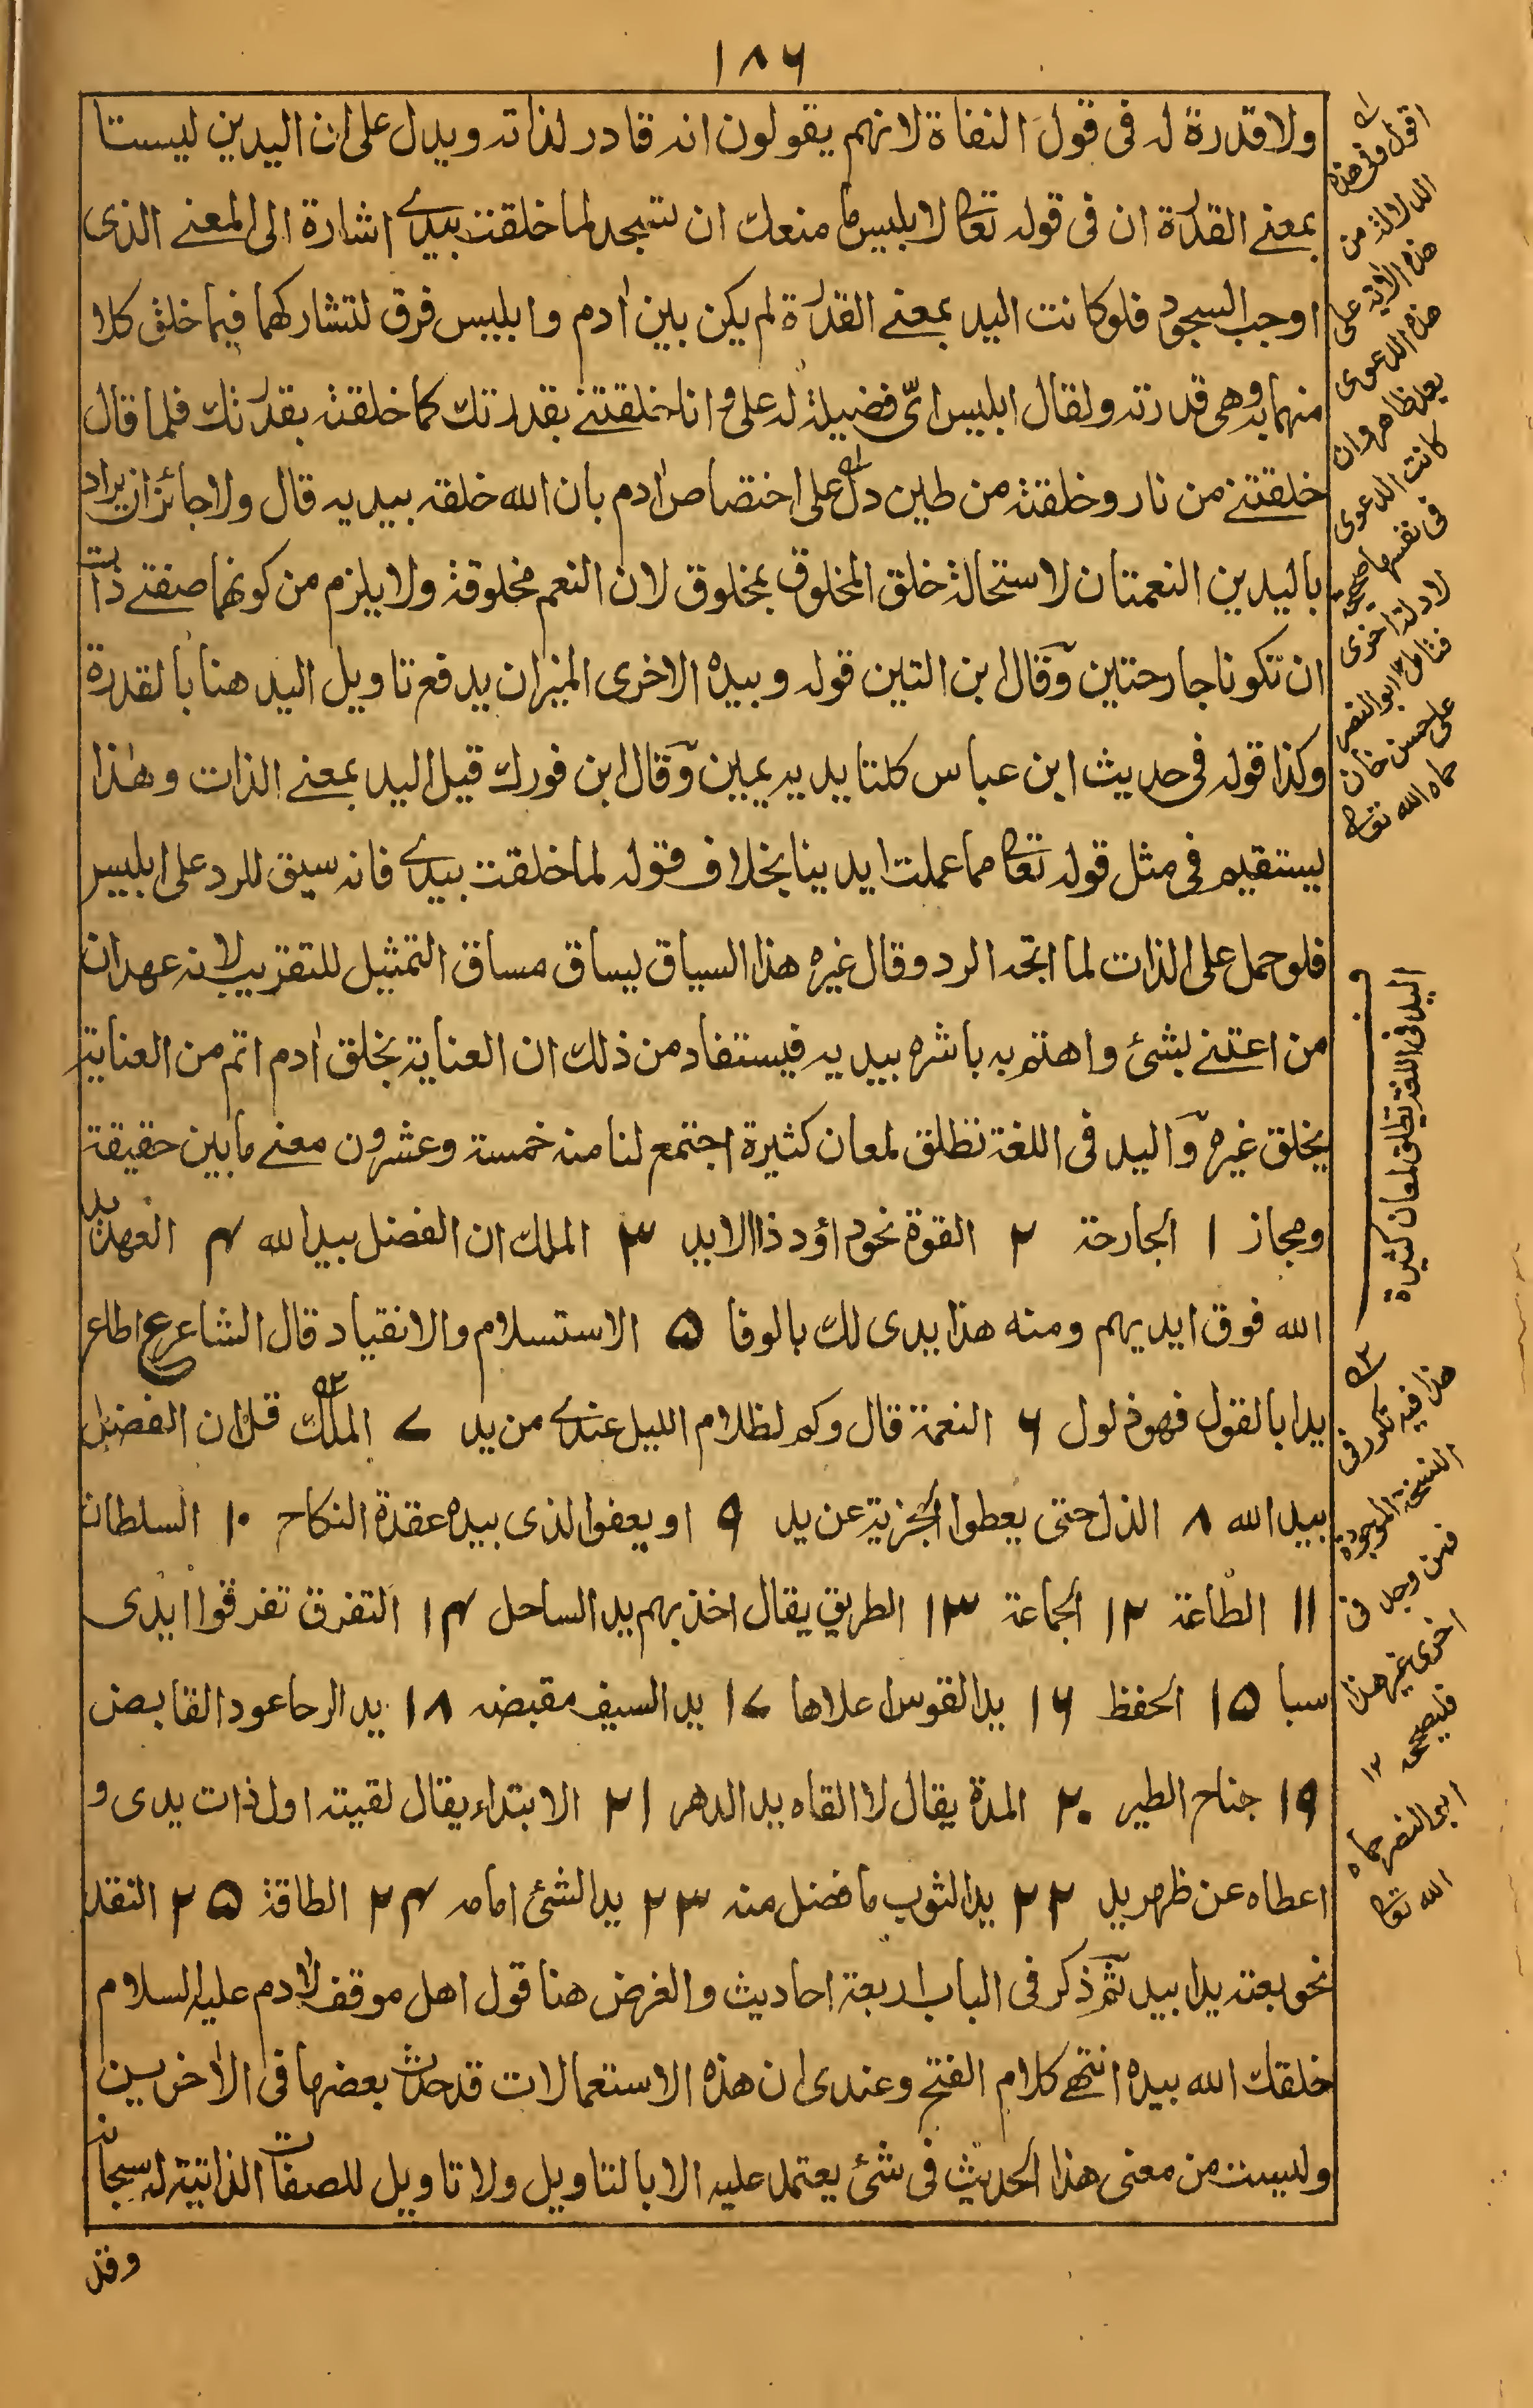 ١٨٦
ولا قدرة له فى قول النفاة لانهم يقولون انه قادر لذاته ويدل على ان اليدين ليستا
بمعنے القدرة ان فى قوله تعالى لابليس ما منعك ان تسجد لما خلقت بيدے اشارة الى المعنے الذى
اوجب السجود فلو كانت اليد بمعنے القدرة لم يكن بين اٰدم وابليس فرق لتشاركهما فيما خلق كلا
منهما به وهى قدرته ولقال ابليس اىّ فضيلة له علىّ وانا خلقتنے بقدرتك كما خلقته بقدرتك فلما قال
خلقتنے من نار وخلقته من طين دل على اختصاص اٰدم بان الله خلقه بيديه قال ولا جائز ان يراد
باليدين النعمتان لاستحالة خلق المخلوق بمخلوق لان النعم مخلوقة ولا يلزم من كونهما صفتے ذات
ان تكونا جارحتين وقال ابن التين قوله وبيده الاخرى الميزان يدفع تاويل اليد هنا بالقدرة
وكذا قوله فى حديث ابن عباس كلتا يديه يمين وقال ابن فورك قيل اليد بمعنے الذات وهذا
يستقيم فى مثل قوله تعالى مما عملت ايدينا بخلاف قوله لما خلقت بيدے فانه سيق للرد على ابليس
فلو حمل على الذات لما اتجه الرد وقال غيره هذا السياق يساق مساق التمثيل للتقريب لانه عهد ان
من اعتنے بشئ واهتم به باشره بيديه فيستفاد من ذلك ان العناية بخلق اٰدم اتم من العناية
بخلق غيره واليد فى اللغة تطلق لمعان كثيرة اجتمع لنا منه خمسة وعشرون معنے ما بين حقيقة
ومجاز ١ الجارحة ٢ القوة نحو داؤد ذا الايد ٣ الملك ان الفضل بيد الله ٤ العهد يد
الله فوق ايديهم ومنه هذا يدى لك بالوفا ٥ الاستسلام والانقياد قال الشاعر ع اطاع
يدا بالقول فهو ذلول ٦ النعمة قال وكم لظلام الليل عندے من يد ٧ الملك قل ان الفضل
بيد الله ٨ الذل حتى يعطوا الجزية عن يد ٩ او يعفوا الذى بيده عقدة النكاح ١٠ السلطان
١١ الطاعة ١٢ الجماعة ١٣ الطريق يقال اخذ بهم يد الساحل ١٤ التفرق تفرقوا ايدى
سبا ١٥ الحفظ ١٦ يد القوس اعلاها ١٧ يد السيف مقبضه ١٨ يد الرحا عود القابض
١٩ جناح الطير ٢٠ المدة يقال لا القاه يد الدهر ٢١ الابتداء يقال لقيته اول ذات يدى و
اعطاه عن ظهر يد ٢٢ يد الثوب ما فضل منه ٢٣ يد الشئ امامه ٢٤ الطاقة ٢٥ النقد
نحو بعته يدا بيد ثم ذكر فى الباب اربعة احاديث والغرض هنا قول اهل موقف لاٰدم عليه السلام
خلقك الله بيده انتهى كلام الفتح وعندى ان هذه الاستعمالات قد حدث بعضها فى الاٰخرين
وليست من معنى هذا الحديث فى شئ يعتمد عليه الا بالتاويل ولا تاويل للصفات الذاتية له سبحانه
وقد
اقول وفى هذه
الدلالة من
هذه الاٰية على
هذه الدعوى
بعد ظاهر وان
كانت الدعوى
فى نفسها صحيحة
لادلة اخرى
فتامل ١٢ ابو النصر
على حسن خان
حماه الله تعالى
ف
اليد فى اللغة تطلق لمعان كثيرة
هذا فيه تكرر فى
النسخة الموجودة
فمن وجد ق
اخرى غير هذا
فليصححه ١٢
ابى النصر حماه
الله تعالى